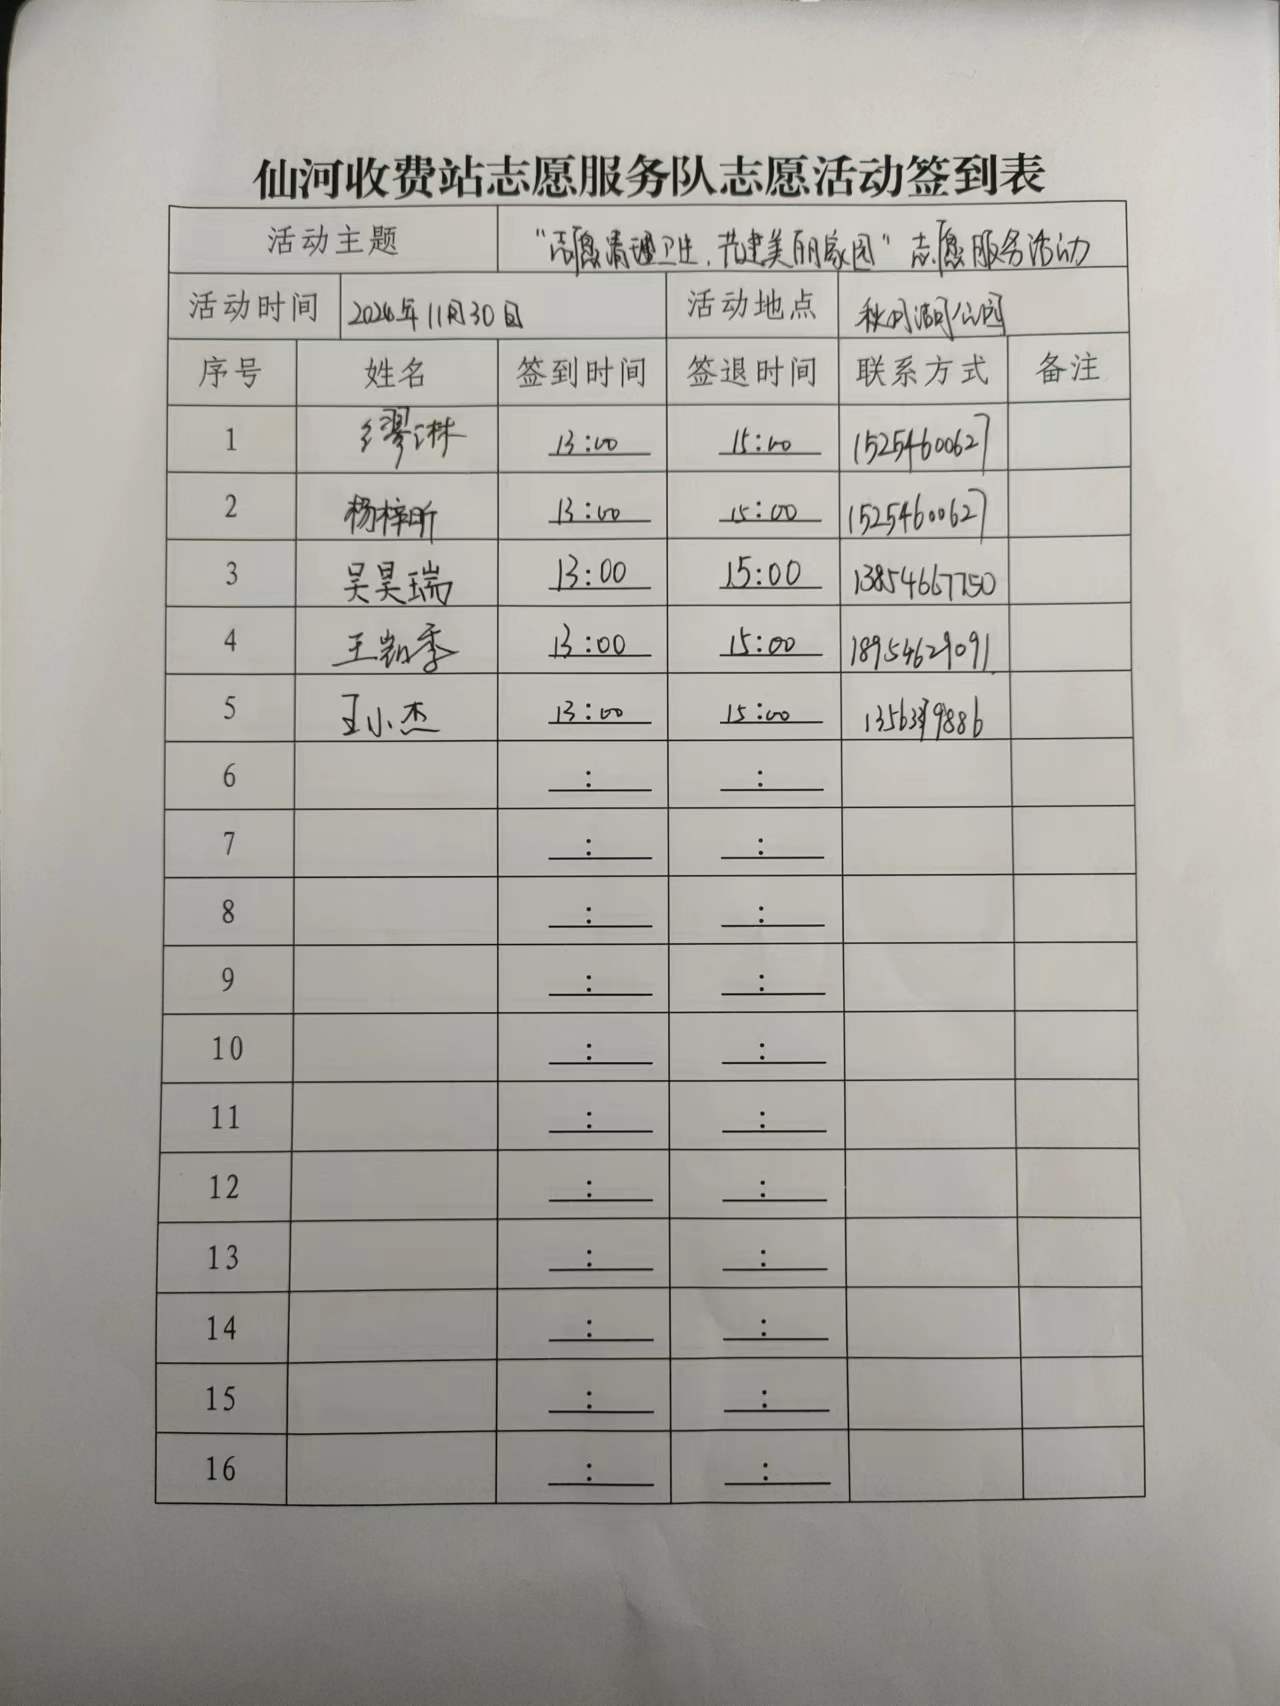 仙河收费站志愿服务队志愿活动签到表
活动主题 “志愿清理卫生,共建美丽家园”志愿服务活动
活动时间 2024年11月30日 活动地点 公园
序号 姓名 签到时间 签退时间 联系方式 备注
1 缪琳 13:00 15:00 15254600627
2 杨梓昕 13:00 15:00 15254600627
3 吴昊瑞 13:00 15:00 13854667750
4 王 季 13:00 15:00 18954629091
5 王小杰 13:00 15:00
6 : :
7 : :
8 : :
9 : :
10 : :
11 : :
12 : :
13 : :
14 : :
15 : :
16 : :